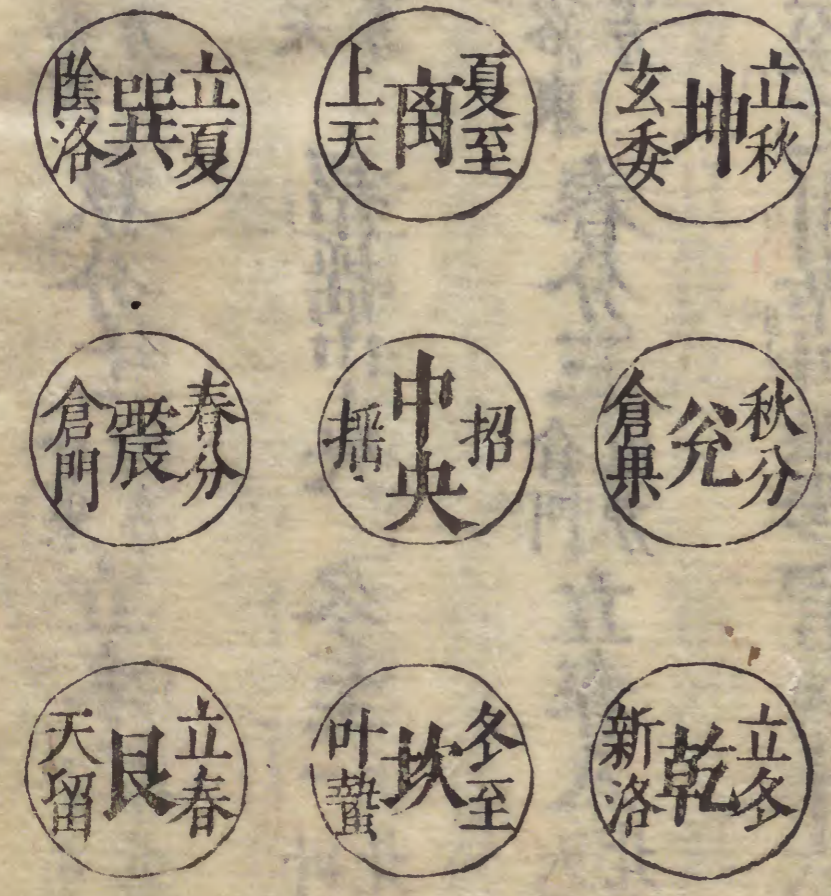 立秋
坤
玄委
夏至
离
上天
立夏
巽
陰洛
秋分
兊
倉果
招
中央
搖
春分
震
倉門
立冬
乾
新洛
冬至
坎
叶蟄
立春
艮
天留